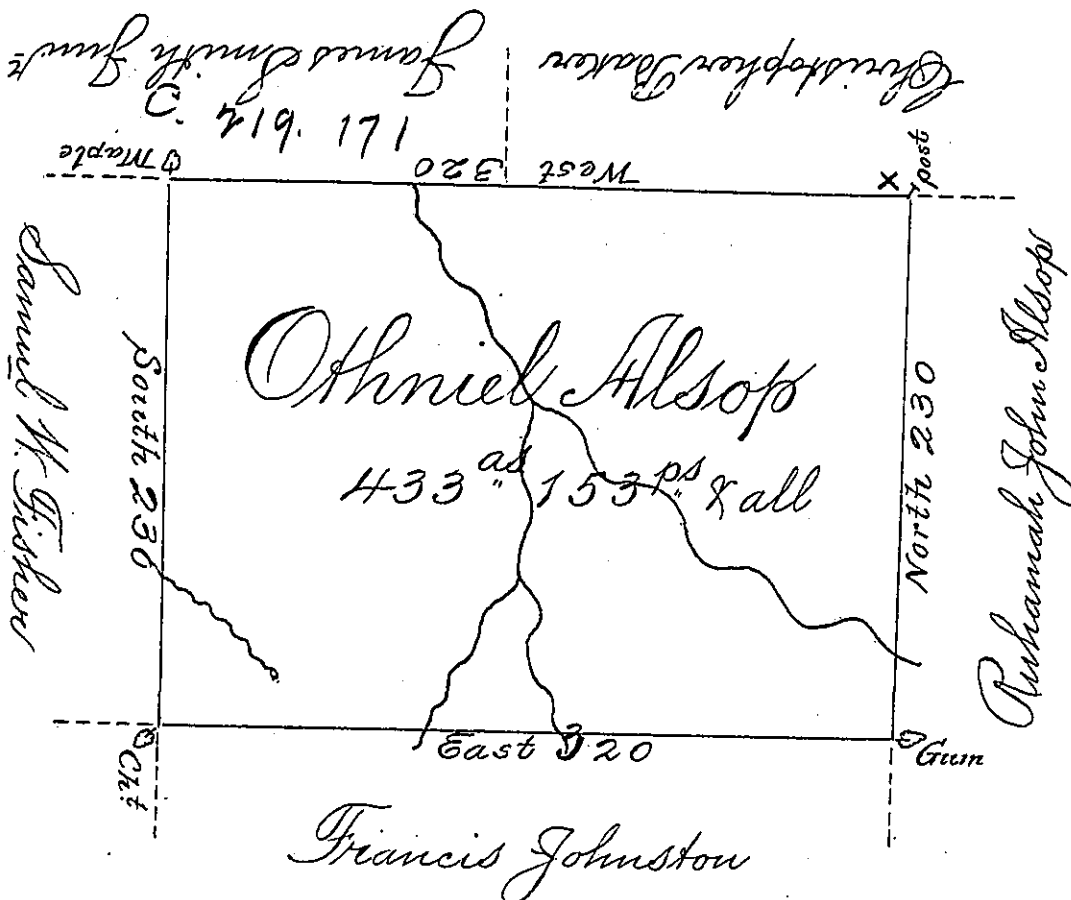 Christopher Baker
James Smith Junr
Maple
West 320
post
x
Samuel W. Fisher
South 230
Othniel Alsop
433 as 153 ps & all
North 230
Ruhamah John Alsop
Cht
East 320
Gum
Francis Johnston